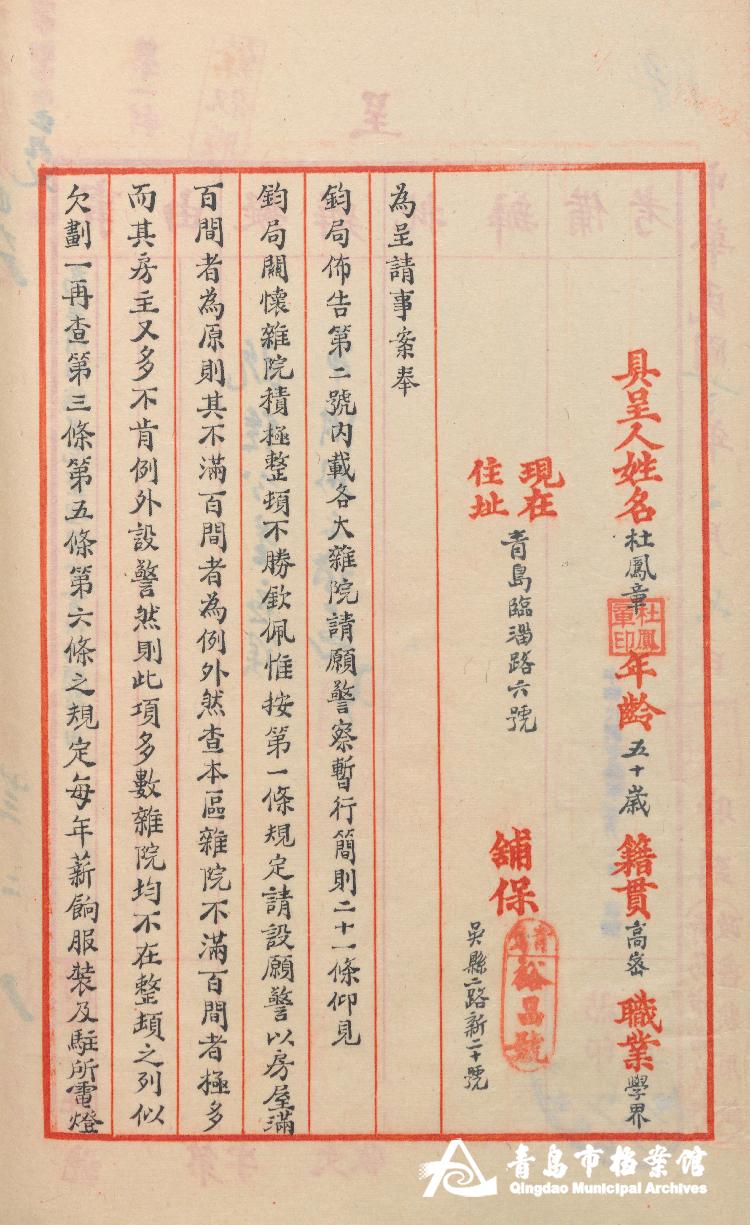 具呈人姓名杜鳳章年齡五十歲籍貫高密職業學界
杜鳳章印
現在住址青島臨淄路六號
舖保
青島裕昌號
吳縣二路新二十號
為呈請事案奉
鈞局佈告第二號內載各大雜院請願警察暫行簡則二十一條仰見
鈞局關懷雜院積極整頓不勝欽佩惟按第一條規定請設願警以房屋滿
百間者為原則其不滿百間者為例外然查本區雜院不滿百間者極多
而其房主又多不肯例外設警然則此項多數雜院均不在整頓之列似
欠劃一再查第三條第五條第六條之規定每年薪餉服裝及駐所電燈
青島市档案馆
Qingdao Municipal Archives